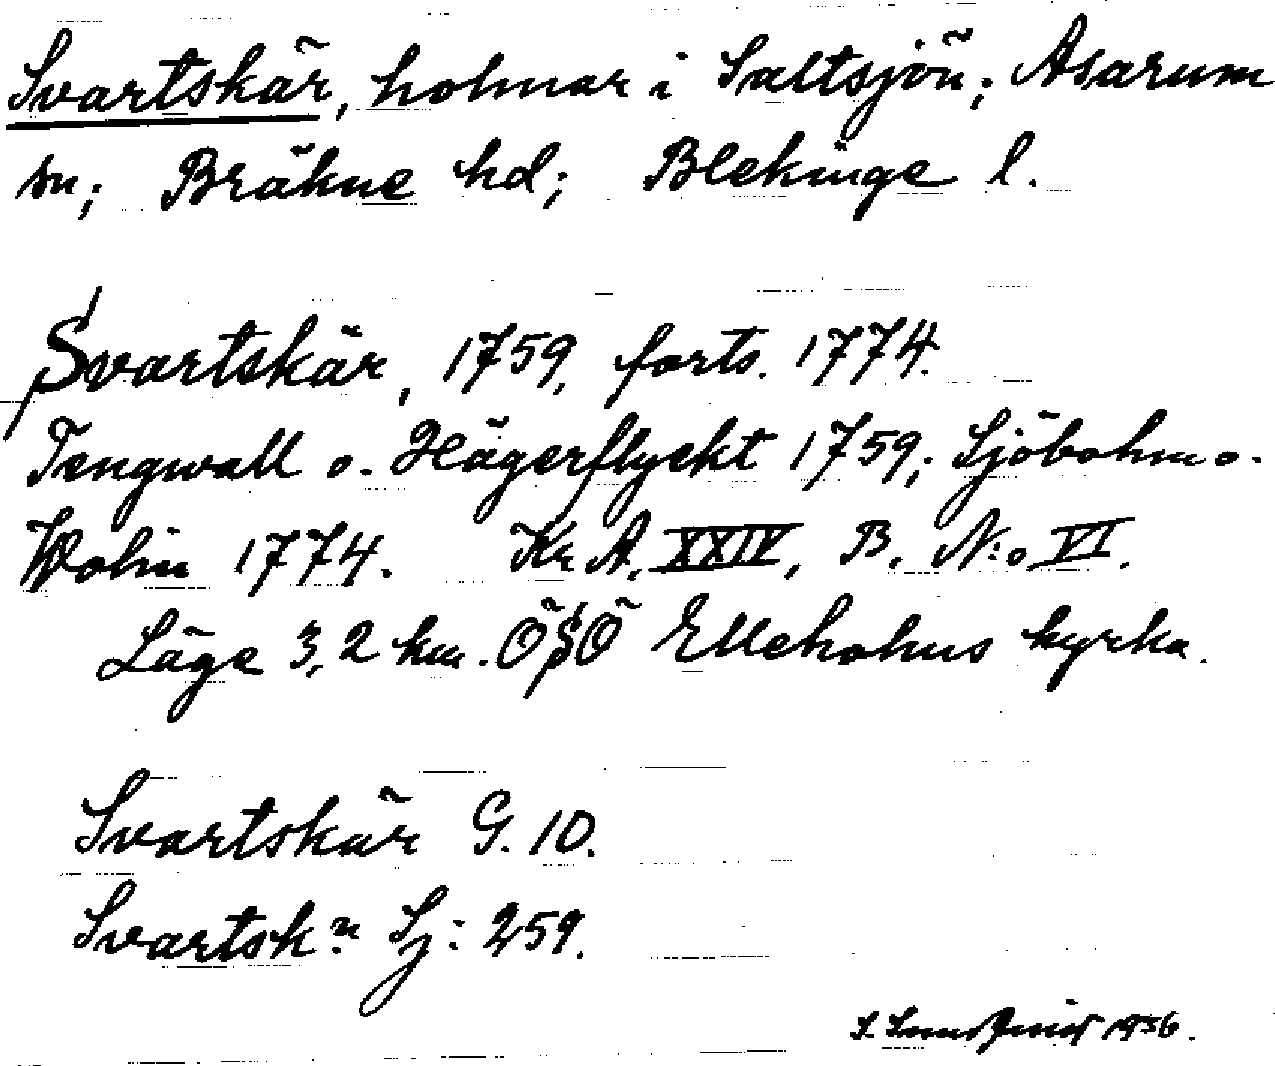 Svartskär, holmar i Saltsjön; Asarum
sn; Bräkne hd; Blekinge l.
Svartskär, 1759, forts. 1774.
Tengwall o. Hägerflyckt 1759; Sjöbohm o.
Wolin 1774. Kr. A. XXIV, B. N:o VI.
Läge 3,2 km. ÖSÖ Elleholms kyrka.
Svartskär G. 10.
Svartsk:r Sj: 259.
S. 1936.